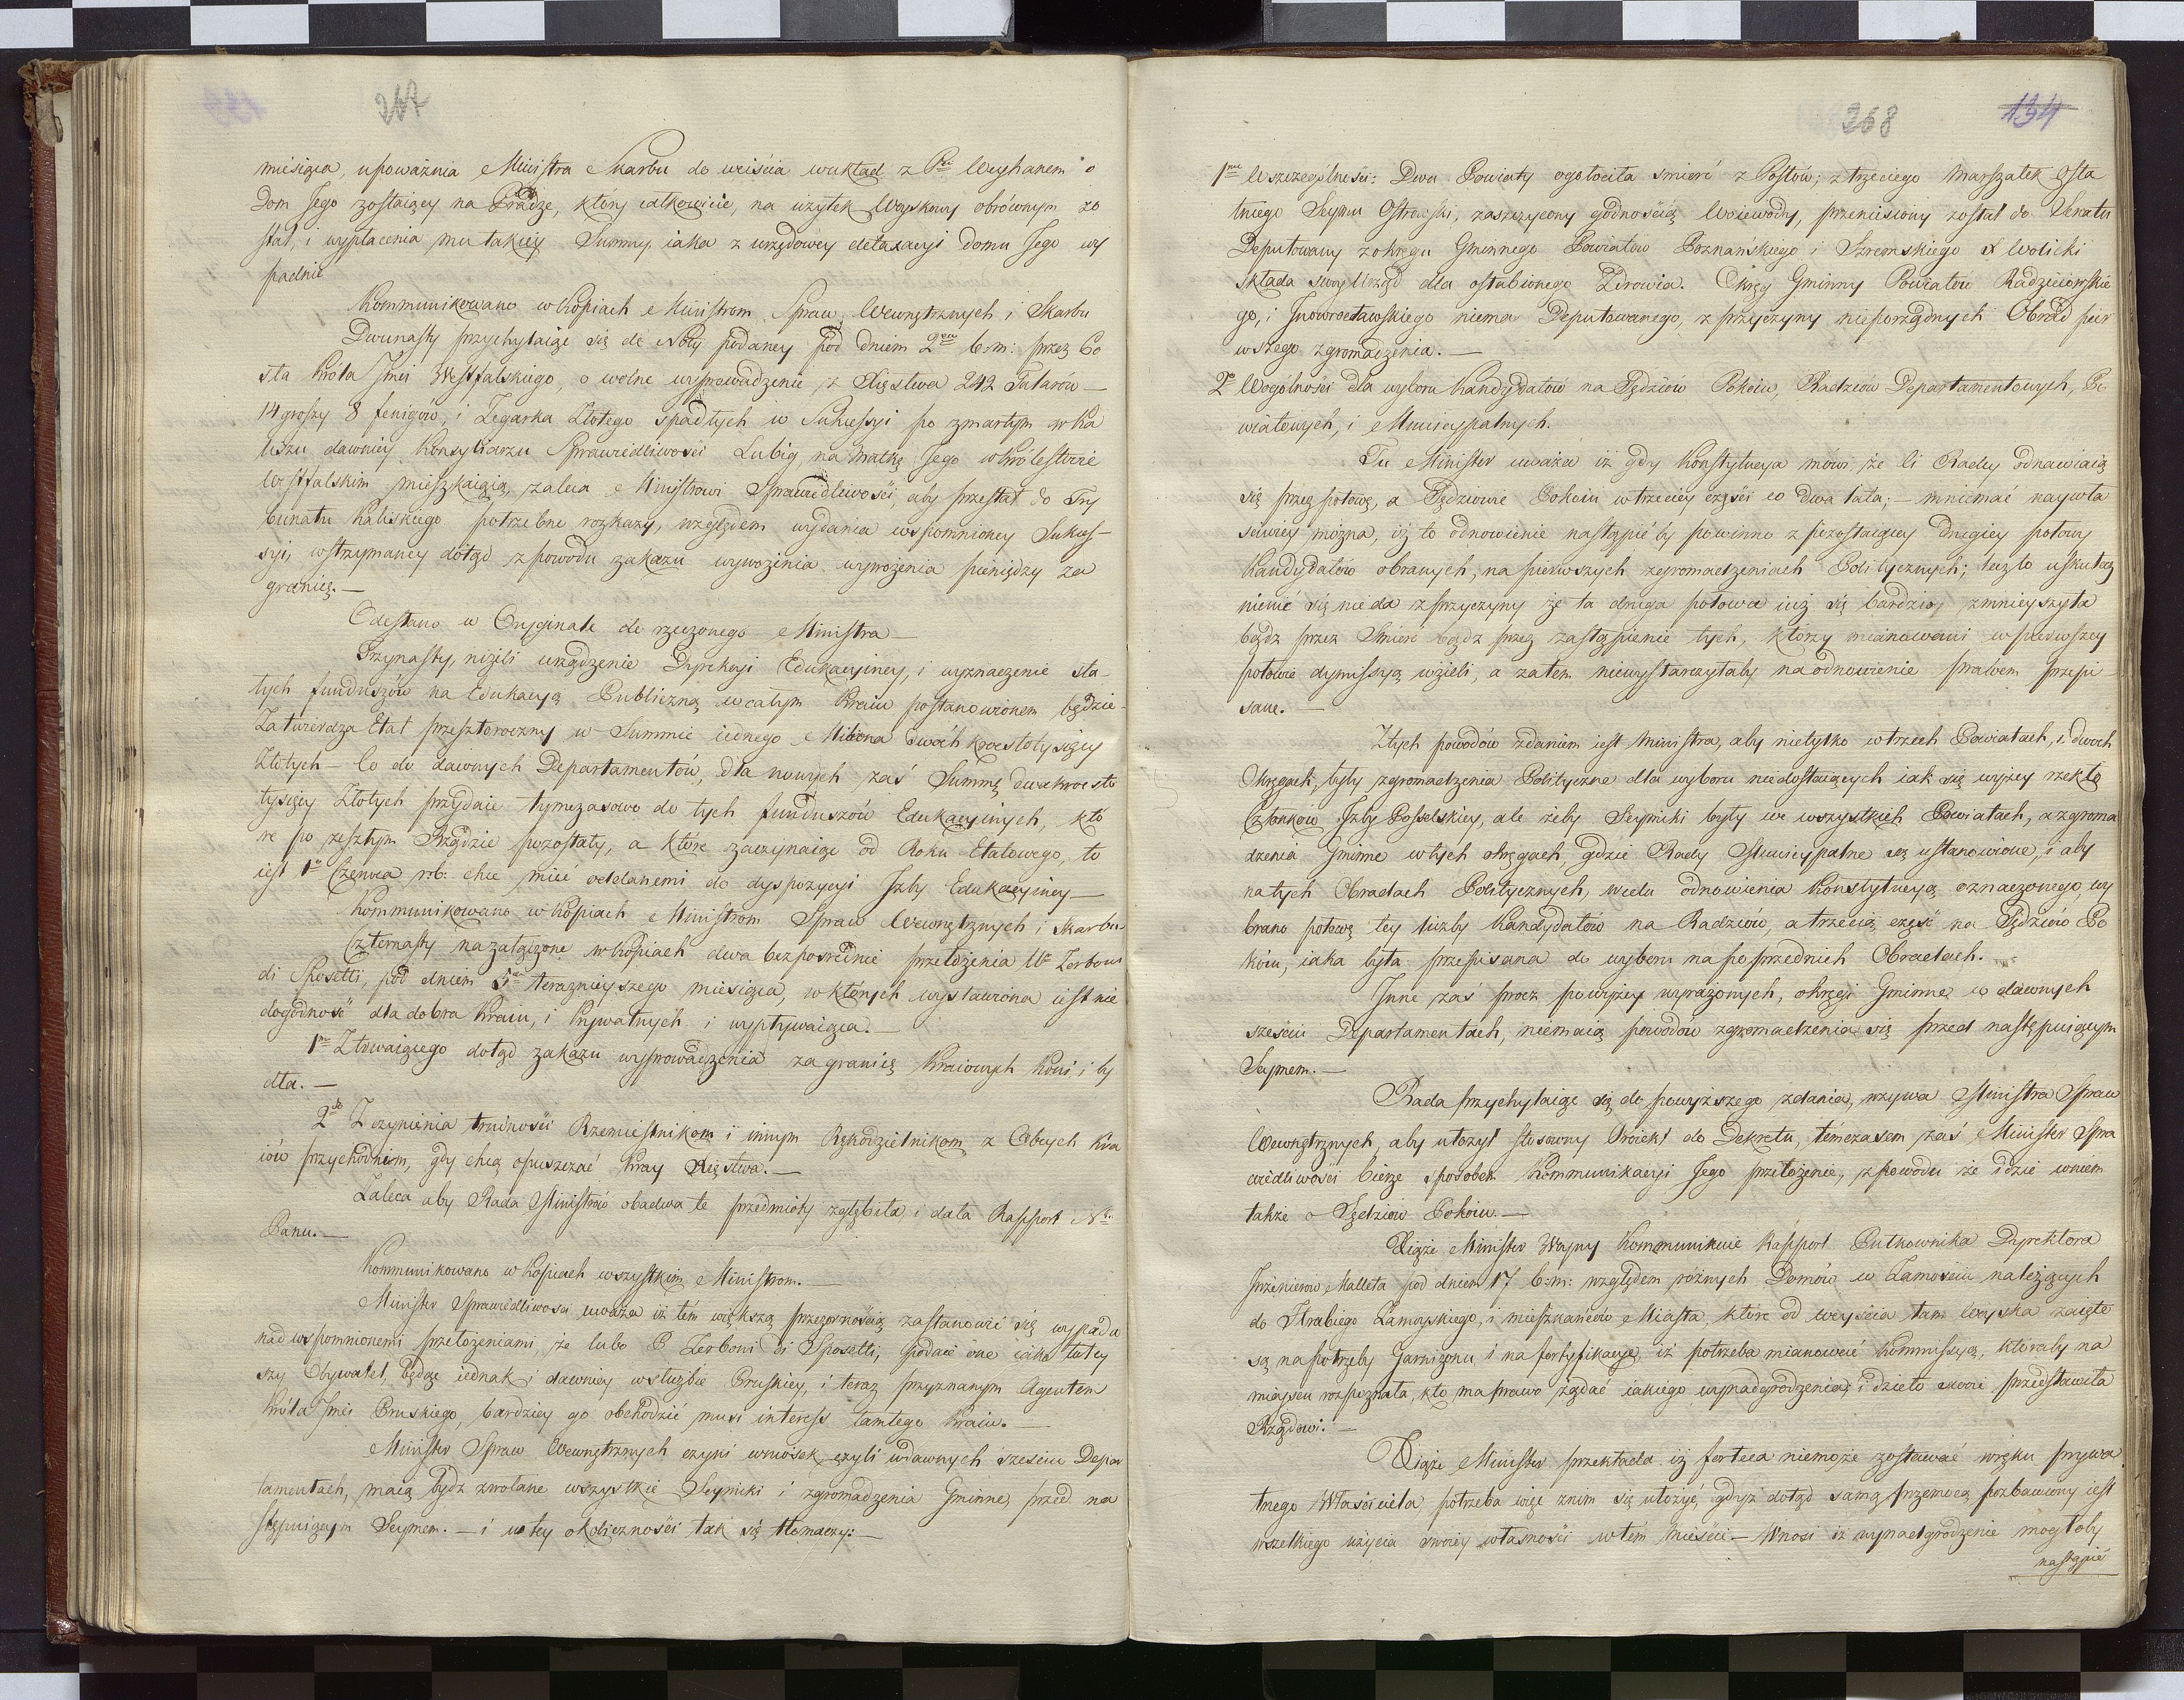 267
miesiąca, upoważnia Ministra Skarbu do weiścia w układ z P<sup>m</sup> Weyhanem o
Dom Jego zostaiący na Pradze, który całkowicie, na użytek Woyskowy obrócnym zo
stał, i wypłacenia mu takiey Summy, iaka z urzędowey detaxacyi domu Jego wy
padnie
Kommunikowano w kopiach Ministrom Spraw Wewnętrznych i Skarbu
Dwunasty przychylaiąc się do Noty podaney pod dniem 2 b:m: przez Po
sła Króla Jmci Westfalskiego, o wolne wyprowadzenie z Xięstwa 242 Talarów —
14 groszy 8 fenigów, i Zegarka Złotego spadłych w Sukcessyi po zmarłym w Ka
liszu dawniey Konsyliarzu Sprawiedliwości Lubig, na Matkę Jego w Królestwie
Westfalskim mieszkaiącą, zaleca Ministrowi Sprawiedliwości, aby przesłał do Try
bunału Kaliskiego potrzebne rozkazy, względem wydania wspomnioney Sukces-
syi, wstrzymaney dotąd z powodu zakazu wywożenia wywożenia pieniędzy za
granicę. —
Odesłano w Oryginale do rzeczonego Ministra —
Trzynasty, niżeli urządzenie Dyrekcyi Edukacyiney, i wyznaczenie sta-
łych funduszów na Edukacyą Publiczną w całym Kraiu postanowionem będzie-
Zatwierdza Etat przeszłoroczny w Summie iednego Miliona dwóchkroć stotysięcy
Złotych — Co do dawnych Departamentów, dla nowych zaś Summę dwakroć sto
tysięcy Złotych przydaie tymczasowo do tych funduszów Edukacyinych, któ
re po zeszłym Rządzie pozostały, a które zaczynaiąc od Roku Etatowego, to
iest 1° Czerwca r:b: chce mieć oddanemi do dyspozycyi Izby Edukacyiney —
Kommunikowano w kopiach Ministrom Spraw Wewnętrznych i Skarbu-
Czternasty na załączone w kopiach dwa bezpośrednie przełożenia W° Zerboni
di Sposetti, pod dniem 5 terazniejszego miesiąca, w których wystawiona iest nie
dogodność dla dobra Kraiu, i Prywatnych i wypływaiąca. —
1<sup>mo</sup> Z trwaiącego dotąd zakazu wyprowadzenia za granicę Kraiowych Koni i by
dła. —
2<sup>do</sup> Z czynienia trudności Rzemieślnikom i innym Rękodzielnikom z Obcych Kra
iów przychodniom, gdy chcą opuszczać Kray Xięstwa. —
Zaleca aby Rada Ministrów obadwa te przedmioty zgłębiła, i dała Rapport N.
Panu. —
Kommunikowano w kopiach wszystkim Ministrom. —
Minister Sprawiedliwości uważa iż tém większą przezornością zastanowić się wypada
nad wspomnionemi przełożeniami, że lubo P Zerboni di Sposetti, podaie one iako tutey
szy Obywatel, będąc iednak i dawniey w służbie Pruskiey, i teraz przyznanym Agentem
Króla Jmci Pruskiego, bardziey go obchodzić musi interess tamtego Kraiu. —
Minister Spraw Wewnętrznych czyni wniosek, czyli w dawnych sześciu Depar
tamentach, maią bydz zwołane wszystkie Seymiki i zgromadzenia Gminne, przed na
stępuiącym Seymem. — i w tey okoliczności tak się tłomaczy: —
268
134
1<sup>mo</sup> W szczególności: Dwa Powiaty ogołociła śmierć z Posłów; z trzeciego Marszałek Osta
tniego Seymu Ostrowski, zaszczycony godnością Woiewody, przeniesiony został do Senatu
Deputowany z okręgu Gminnego Powiatów Poznańskiego i Szremskiego X Wolicki
składa swóy Urząd dla osłabionego Zdrowia. Okręg Gminny Powiatów Radzieiowskie
go, i Jnowrocławskiego niema Deputowanego, z przyczyny nieporządnych Obrad pier
wszego zgromadzenia. —
2° W ogólności dla wyboru Kandydatów na Sędziów Pokoiu, Radzców Departamentowych, Po
wiatowych, i Municypalnych.
Tu Minister uważa iż gdy Konstytucya mówi że li Rady odnawiaią
się przez połowę, a Sędziowie Pokoiu w trzeciey części co dwa lata; — mniemać naywła
ściwiey można, iż to odnowienie nastąpić by powinno z pozostaiącey drugiey połowy
Kandydatów obranych, na pierwszych zgromadzeniach Politycznych; lecz to uskutecz
nieniè się nie da z przyczyny że ta druga połowa iuż się bardziey zmnieyszyła
bądz przez Śmierć bądz przez zastąpienie tych, którzy mianowani w pierwszey
połowie dymissyą wzięli, a zatem niewystarczyłaby na odnowienie prawem przepi-
sane. —
Z tych powodów zdaniem iest Ministra, aby nietylko w trzech Powiatach, i dwóch
Okręgach, były zgromadzenia Polityczne dla wyboru niedostaiących iak się wyżey rzekło
Członków Izby Posselskiey, ale żeby Seymiki były we wszystkich Powiatach, a zgroma
dzenia Gminne w tych okręgach, gdzie Rady Municypalne są ustanowione, i aby
na tych Obradach Politycznych, w celu odnowienia Konstytucyą oznaczonego, wy
brano połowę tey liczby Kandydatów na Radzców, a trzecią część na Sędziów Po
koiu, iaka była przepisana do wyboru na poprzednich Obradach.
Inne zaś procz powyżey wyrażonych, okręgi Gminne w dawnych
sześciu Departamentach, niemaią powodów zgromadzenia się przed następuiącym
Seymem. —
Rada przychylaiąc się do powyższego zdania, wzywa Ministra Spraw
Wewnętrznych, aby ułożył stosowny Proiekt do Dekretu, tymczasem zaś Minister Spra
wiedliwości bierze sposobem Kommunikacyi Jego przełożenie, z powodu że idzie w niem
także o Sędziów Pokoiu. —
Xiąże Minister Woyny Kommunikuie Rapport Pułkownika Dyrektora
Inżenierów Malleta pod dniem 17 b:m: względem różnych Domów w Zamościu należących
do Hrabiego Zamoyskiego, i mieszkańców Miasta, które od weyścia tam Woyska zaięte
są na potrzeby Garnizonu i na fortyfikacye, iż potrzeba mianować Kommissyą, któraby na
mieyscu rozpoznała, kto ma prawo żądać iakiego wynadgrodzenia, i dzieło swoie przedstawiła
Rządowi. —
Xiąże Minister przekłada iż forteca niemoże zostawać w ręku prywa
tnego Właściciela, potrzeba więc z nim się ułożyć, gdyż dotąd samą przemocą pozbawiony iest
wszelkiego użycia swoiey własności w tém mieście — Wnosi iż wynadgrodzenie mogłoby
nastąpić